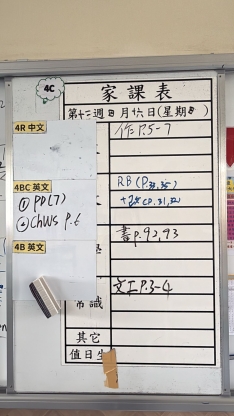 4C
家課表
第十二週 月十六日(星期日)
4R 中文
作P.5-7
4BC 英文
① PD(7)
② ChWs P.6
RB (P.34,35)
4B 英文
書P.92,93
常識
文工P.3-4
其它
值日生